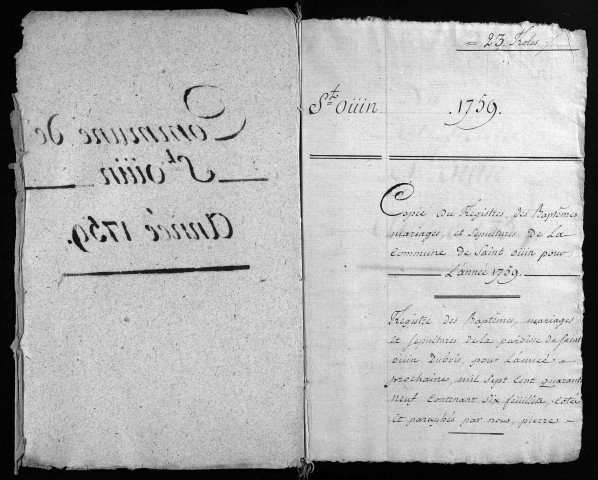 Commune de
St. oüin
Année 1759.
= 23. Roles /
St. oüin
1759.
Copie du Registres, des Baptêmes
mariages, et Sepultures de La
Commune de Saint oüin pour
L'année 1759.
Registre des Baptêmes, mariages
et sepultures de la paroisse de Saint
oüin Dubois, pour L'année
prochaine, mil Sept Cent quarante
neuf Contenant Six feuillets, Cotés
et paraphés par nous, pierre =